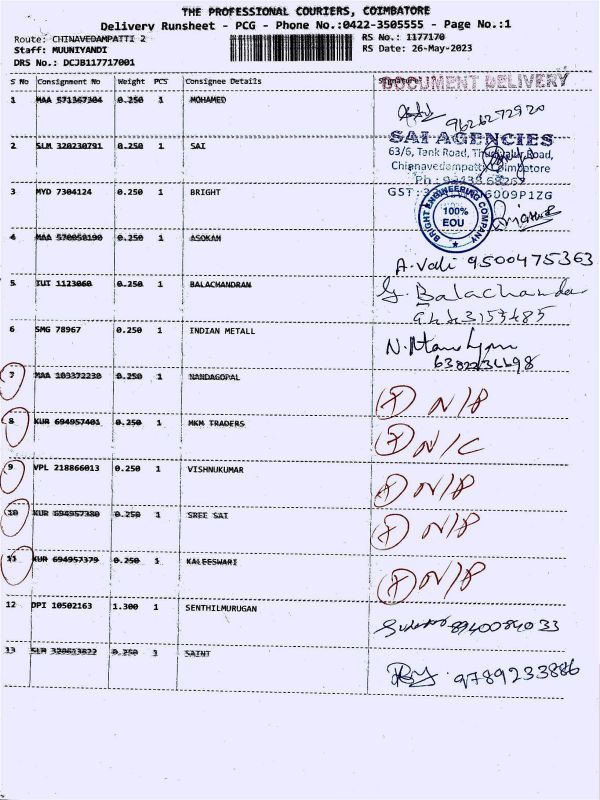 THE PROFESSIONAL COURIERS, COIMBATORE
Delivery Runsheet - PCG - Phone No.:0422-3505555 - Page No.:1
Route: CHINAVEDAMPATTI 2
RS No.: 1177170
Staff: MUUNIYANDI
RS Date: 26-May-2023
DRS No.: DCJB117717001
S No Consignment No Weight PCS Consignee Details Signature
DOCUMENT DELIVERY
1 MAA 571367304 0.250 1 MOHAMED
9626272920
2 SLM 328230791 0.250 1 SAI
SAI AGENCIES
63/6, Tank Road, Road,
Chinnavedampatty, Coimbatore
3 MYD 7304124 0.250 1 BRIGHT
GST:3 6009P1ZG
BRIGHT ENGINEERING COMPANY
100%
EOU
4 MAA 570058190 0.250 1 ASOKAN
A. Vali 9500475363
5 IUI 1123060 0.250 1 BALACHANDRAN
G. Balachander
6 SMG 78967 0.250 1 INDIAN METALL
7 MAA 103372230 0.250 1 NANDAGOPAL
N/P
8 KUR 694957401 0.250 1 MKM TRADERS
N/C
9 VPL 218866013 0.250 1 VISHNUKUMAR
N/P
10 KUR 694957380 0.250 1 SREE SAI
N/P
11 KUR 694957379 0.250 1 KALEESWARI
N/P
12 DPI 10502163 1.300 1 SENTHILMURUGAN
8940084033
13 SLM 328613822 0.250 1 SAINT
9789233886